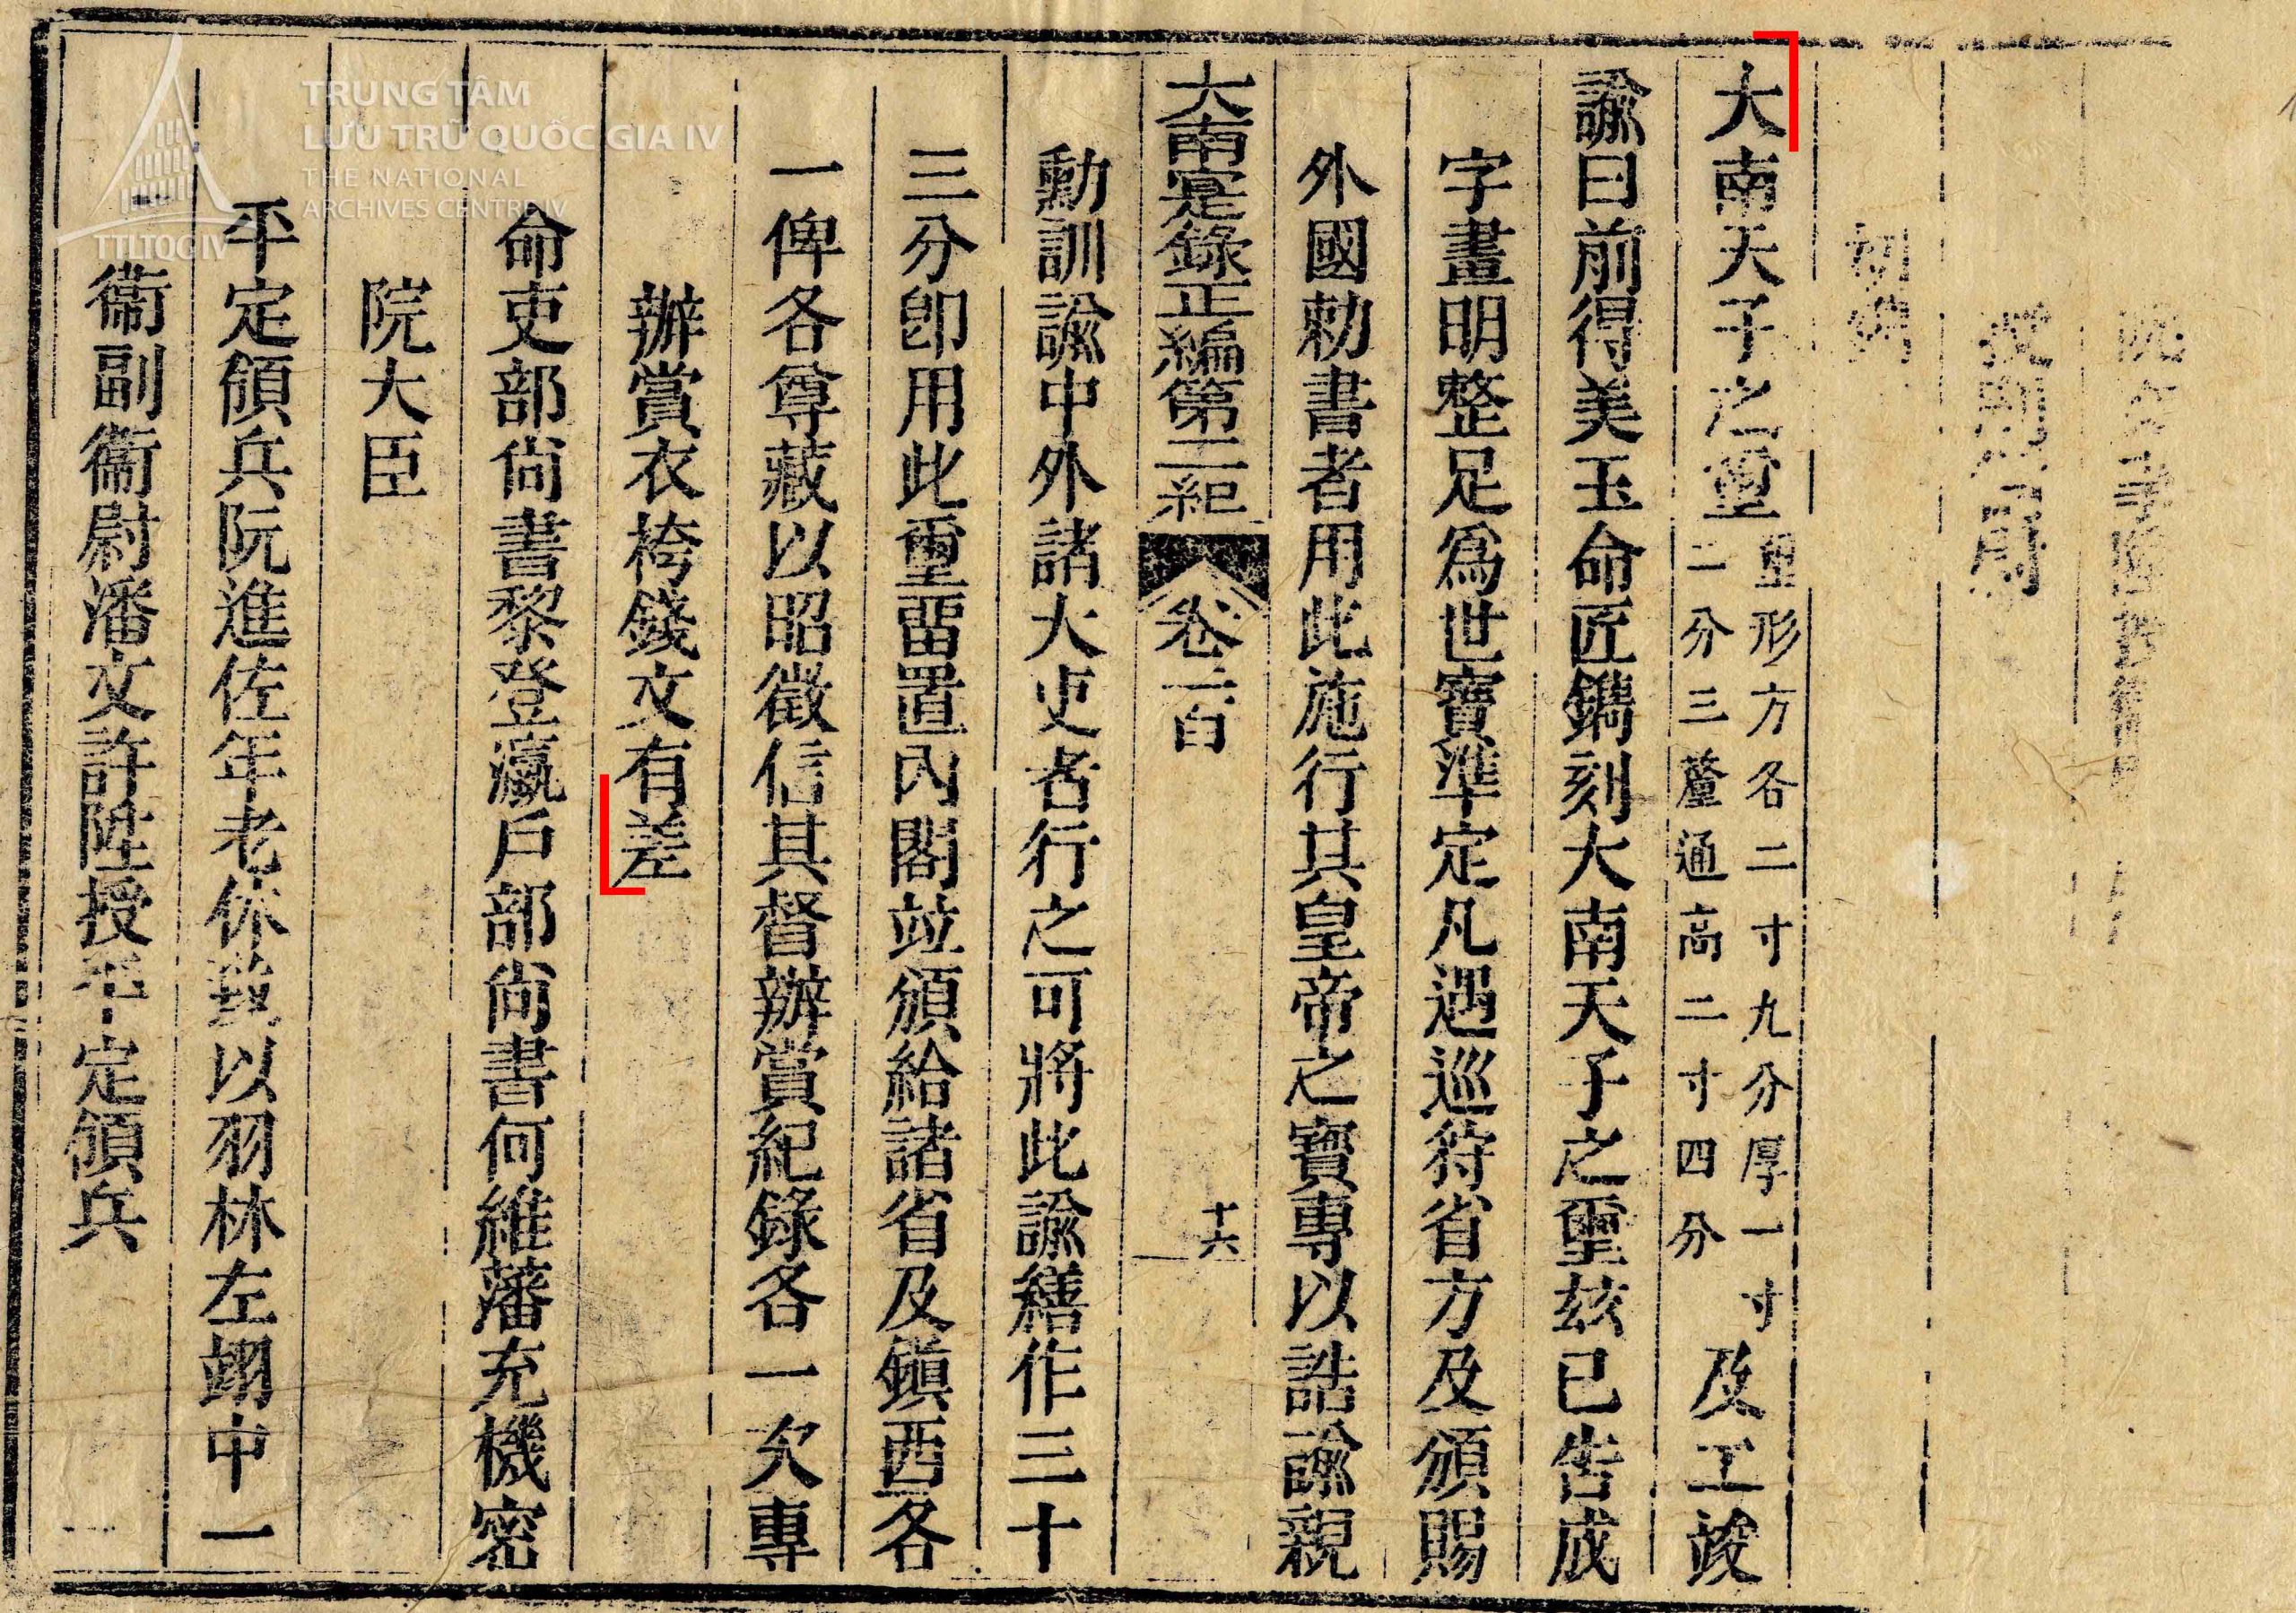 初鐫
大南天子之璽璽形方各二寸九分厚一寸
二分三釐通高二寸四分及工竣
諭曰前得美玉命匠鐫刻大南天子之璽茲已告成
字畫明整足爲世寶準定凡遇巡狩省方及頒賜
外國勅書者用此施行其皇帝之寶專以誥諭親
大南寔錄正編第二紀 卷二百 十六
勳訓諭中外諸大吏者行之可將此諭繕作三十
三分卽用此璽畱置內閣竝頒給諸省及鎭西各
一俾各尊藏以昭徵信其督辦賞紀錄各一次專
辦賞衣袴錢文有差
命吏部尙書黎登瀛戶部尙書何維藩充機密
院大臣
平定領兵阮進佐年老休致以羽林左翊中一
衞副衞尉潘文許陞授平定領兵
TRUNG TÂM
LƯU TRỮ QUỐC GIA IV
THE NATIONAL
ARCHIVES CENTRE IV
TTLTQG IV